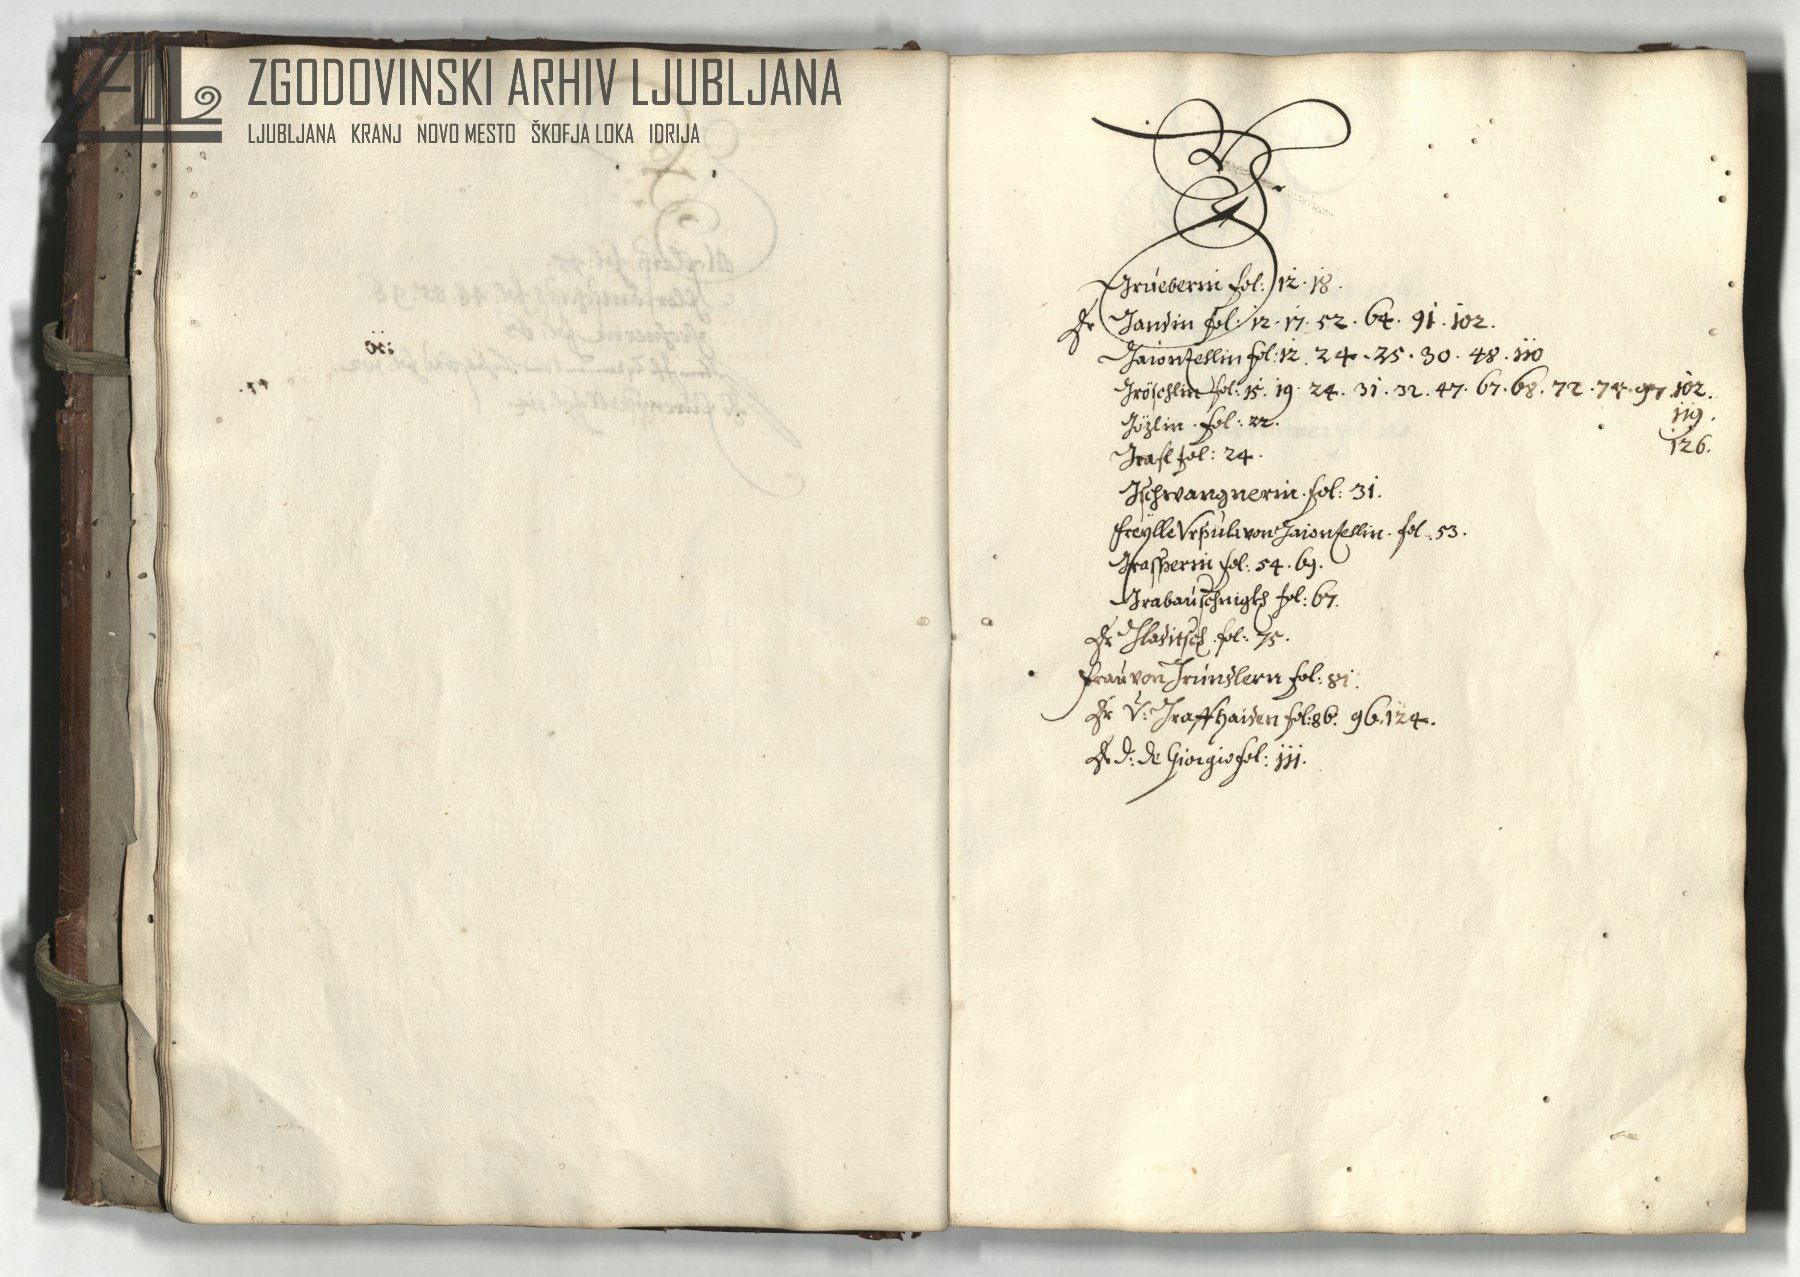 ZGODOVINSKI ARHIV LJUBLJANA
LJUBLJANA KRANJ NOVO MESTO ŠKOFJA LOKA IDRIJA
G.
Grueberin fol: 12. 18.
Hr Gandin fol: 12. 17. 52. 64. 91. 102.
Gaionzellin fol: 12. 24. 25. 30. 48. 110
Gröschlin fol: 15. 19. 24. 31. 32. 47. 67. 68. 72. 74. 97. 102.
119.
Gözlin. fol: 22.
126.
Grasl fol: 24.
Gschwangnerin. fol: 31.
freylle Ursula von Gaionzellin. fol: 53.
Grasserin fol: 54. 69.
Grabauschnigkh fol: 67.
Hr Gladitsch fol: 75.
Frau von Grundlern fol: 81.
Hr V: Graffhaiden fol: 86. 96. 124.
Hr D: de Giorgio fol: 111.